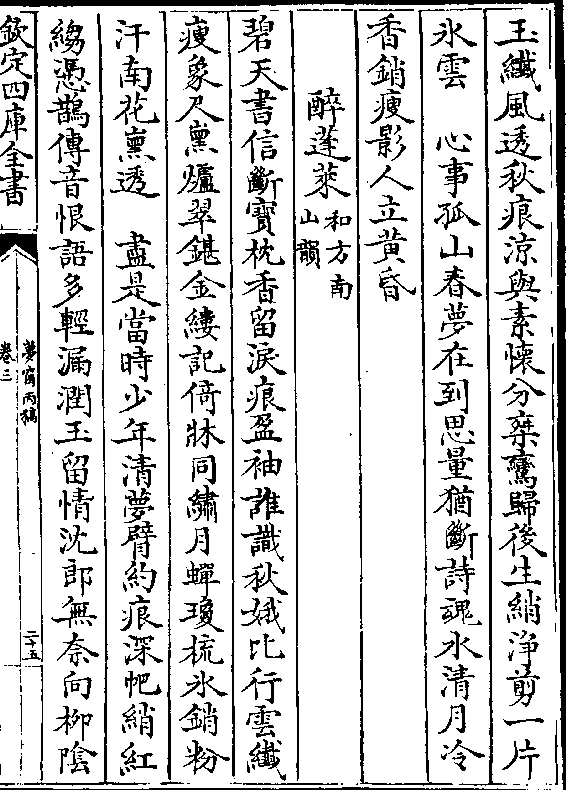 玉纖風透秋痕涼與素懷分桒鸞歸後生綃淨剪一片
氷雲　心事孤山春夢在到思量猶斷詩魂水清月冷
香銷瘦影人立黃昏
醉蓬萊和方南山韻
碧天書信斷寶枕香留淚痕盈袖誰識秋娥比行雲纖
瘦象尺熏爐翠鍼金縷記倚牀同繡月嚲瓊梳氷銷粉
汗南花熏透　盡是當時少年清夢臂約痕深帊綃紅
縐憑鵲傳音恨語多輕漏潤玉留情沈郎無奈向柳陰
欽定四庫全書
夢窗丙稿
卷三
二十五